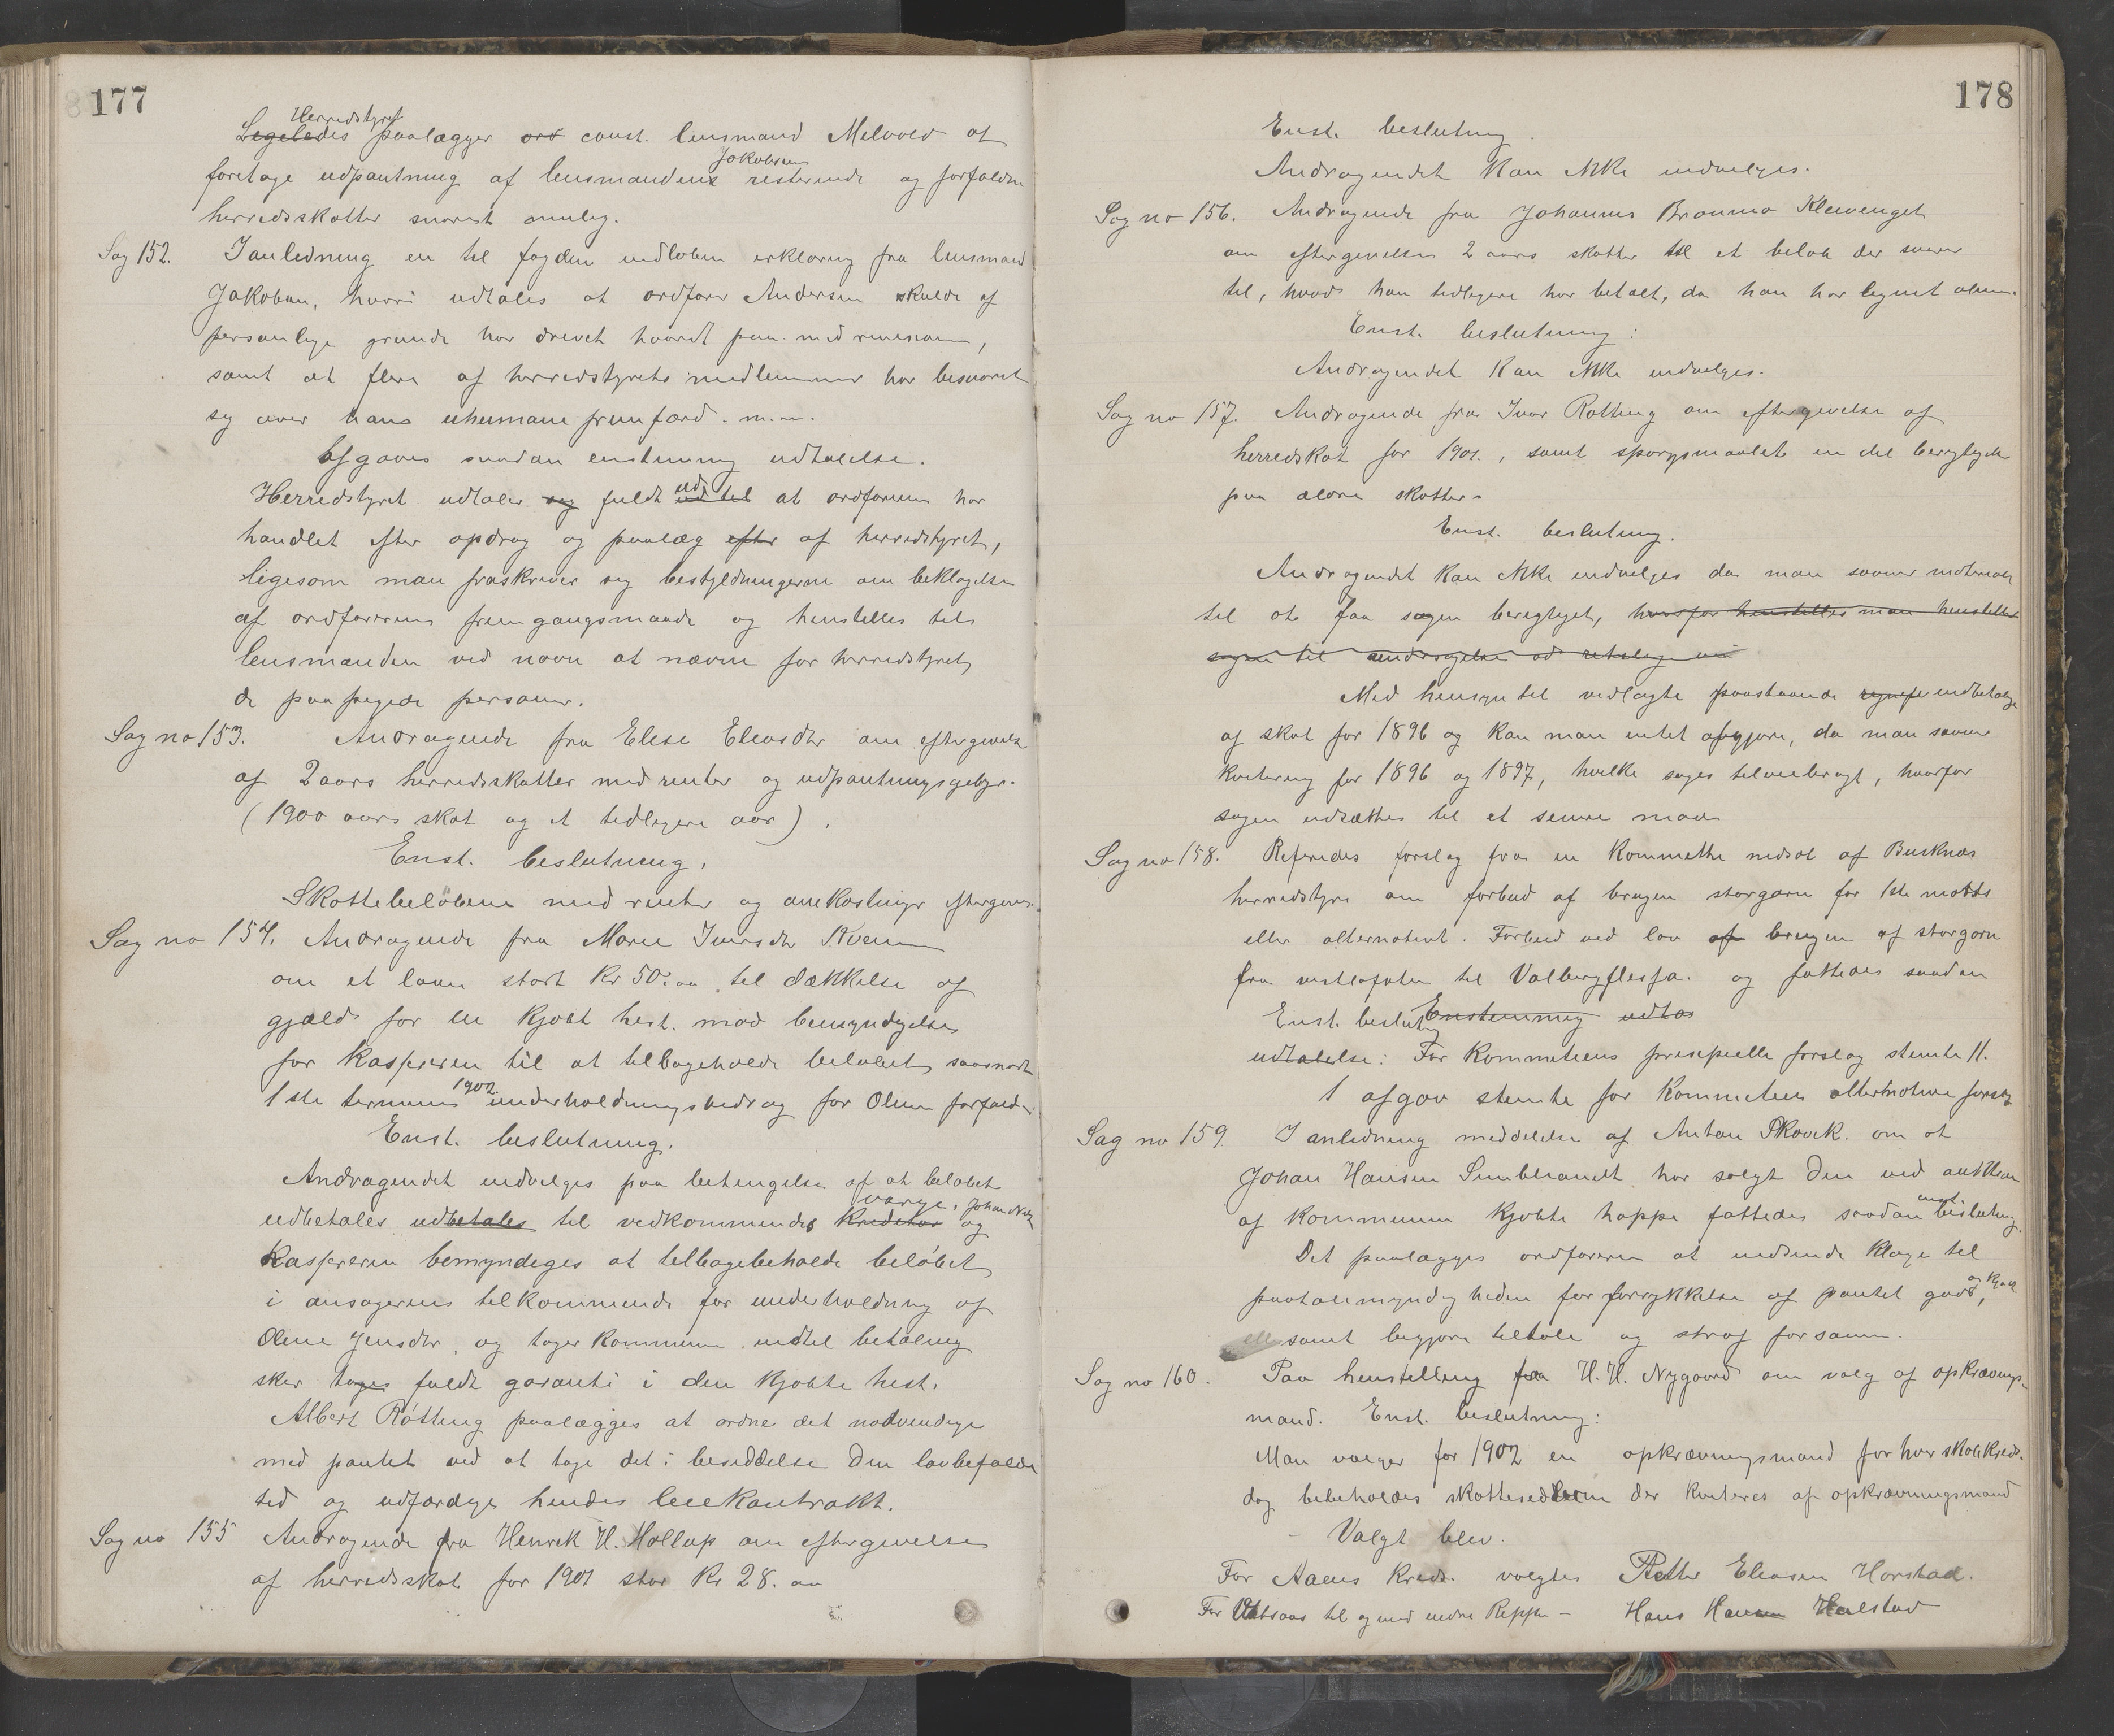 177
Herredstyret
Ligeledes paalægger ord const. lensmand Melvold at
foretage udpantning af lensmandens Jakobsens resterende og forfaldne
herredsskatter snarest mulig.
Sag 152. I anledning en til fogden indløben erklæring fra lensmand
Jakobsen, hvori udtales at ordfører Andersen skulde af
personlige grunde har drevet haardt paa med revision,
samt at flere af herredstyrets medlemmer har besværet
sig over hans uhumane fremfærd. m.m.
Afgaves saadan enstemmig udtalelse.
Herredstyret udtaler sig fuldt ud til at ordføreren har
handlet efter opdrag og paalæg efter af herredstyret,
ligesom man fraskriver sig beskyldningerne om beklagelse
af ordførerens fremgangsmaade og henstilles til
lensmanden ved navn at nævne for herredstyret,
de paapegede personer.
Sag no 153. Andragende fra Elise Eleasdtr om eftergivelse
af 2 aars herredsskatter med renter og udpantningsgebyr.
(1900 aars skat og et tidligere aar).
Enst. beslutning.
Skattebeløbene med renter og omkostninger eftergives.
Sag no 154. Andragende fra Maren Iversdtr Kvern
om et laan stort Kr 50.00 til dækkelse af
gjæld for en kjøbt hest. mod bemyndigelse
for kassereren til at tilbageholde beløbet saasnart
1ste termins 1902 underholdningsbidrag for Oline forfald.
Enst. beslutning.
Andragendet indvilges paa betingelse af at beløbet
udbetales udbetales til vedkommendes kreditor værge, Johan og
Kassereren bemyndiges at tilbagebeholde beløbet
i ansøgerens tilkommende for underholdning af
Oline Jensdtr, og tager kommunen indtil betaling
sker tages fuldt garanti i den kjøbte hest.
Albert Røtting paalægges at ordne det nødvendige
med pantet ved at tage det i besiddelse den lovbefalede
tid og udfærdige hendes leiekontrakt.
Sag no 155 Andragende fra Henrik H. Hollup om eftergivelse
af herredsskat for 1901 stor Kr 28.00
178
Enst. beslutning.
Andragendet kan ikke indvilges.
Sag no 156. Andragende fra Johannes Bronmo Kleivenget
om eftergivelse 2 aars skatter til et beløb der svarer
til, hvad han tidligere har betalt, da han har lignet
Enst. beslutning:
Andragendet kan ikke indvilges.
Sag no 157. Andragende fra Ivar Røtting om eftergivelse af
herredskat for 1901., samt spørgsmaalet en del berigtigelse
paa ældre skatter.
Enst. beslutning.
Andragendet kan ikke indvilges da man savner materiale
til at faa sagen berigtiget, hvorfor henstilles man henstiller
sagen til
Med hensyn til vedlagte paastaaende indbetaling
af skat for 1896 og kan man intet afgjøre, da man savner
kvitering for 1896 og 1897, hvilke søges tilveiebragt, hvorfor
sagen udsættes til et senere møde
Sag no 158. Referedes forslag fra en kommithe nedsat af Buksnæs
herredstyre om forbud af brugen storgarn for 1ste marts
eller alternativt. Forbud ved lov af brugen af storgarn
fra til Valbergflesja. og fattedes saadan
Enst. beslutn Enstemmig udta
udtalelse: For kommiteens prinsipielle forslag stemte 11.
1 afgav stemte for kommiteens alternative forslag
Sag no 159. I anledning meddelelse af Anton Skovik. om at
Johan Hansen Simbliandt har solgt den ved auktion
af kommunen kjøbte hoppe fattedes saadan enst. beslutning.
Det paalægges ordføreren at indsende klage til
paatalemyndigheden for forrykkelse af pantet gods,
samt begjære tiltale og straf for samme.
Sag no 160. Paa henstilling fra H. H. Nygaard om valg af opkrævnings-
mand. Enst. beslutning:
Man vælger for 1902 en opkrævningsmand for hver skolekreds.
dog bebeholdes skattesedlerne der kviteres af opkrævningsmand
- Valgt blev.
For Aaens kreds. valgtes Petter Eleasen Horstad.
For til og med indre Reppe - Hans Hansen Halstad